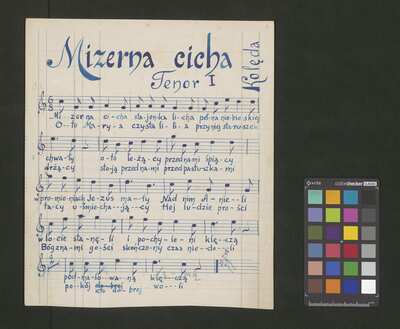 Mizerna cicha
Tenor I
Kolęda
Mi zerna ci-cha sta-jenka li-cha peł-na nie-bie skiej
O-to Ma-ry-a czysta li-li-a przy niej staruszek
chwa-ły o-to le-żą-cy przed nami śpią-cy
drżą-cy sto-ją przed na-mi przed pastusz-ka-mi
w pro-mie-niach Je-zus ma-ły Nad nim a-nie-li
ta-cy u-śmie-cha-ją-cy Hej lu-dzie pro-ści
w locie sta-nę-li i po-chy-le-ni klę-czą
Bóg z na-mi go-ści skończo-ny czas nie-do-li
pokój do brej wo--li